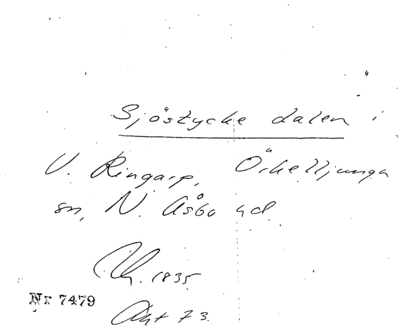 Sjöstycke dalen i
V. Ringarp, Örkelljunga
sn, N. Åsbo hd
1835
Nr 7479
Akt 73.